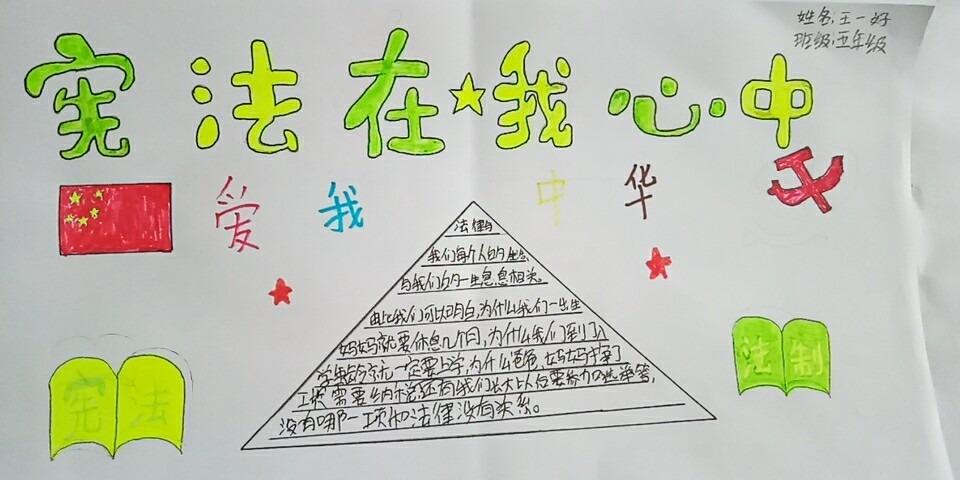 姓名：王一好
班级：五年级
宪法在我心中
爱我中华
法律与
我们每个人的生活
与我们的一生息息相关
由此我们可以明白，为什么我们一出生
妈妈就要休息几个月，为什么我们到了入
学年龄就一定要上学，为什么爸爸、妈妈拿了
工资需要纳税，还有我们长大以后要参加选举等，
没有哪一项和法律没有关系。
宪法
法制